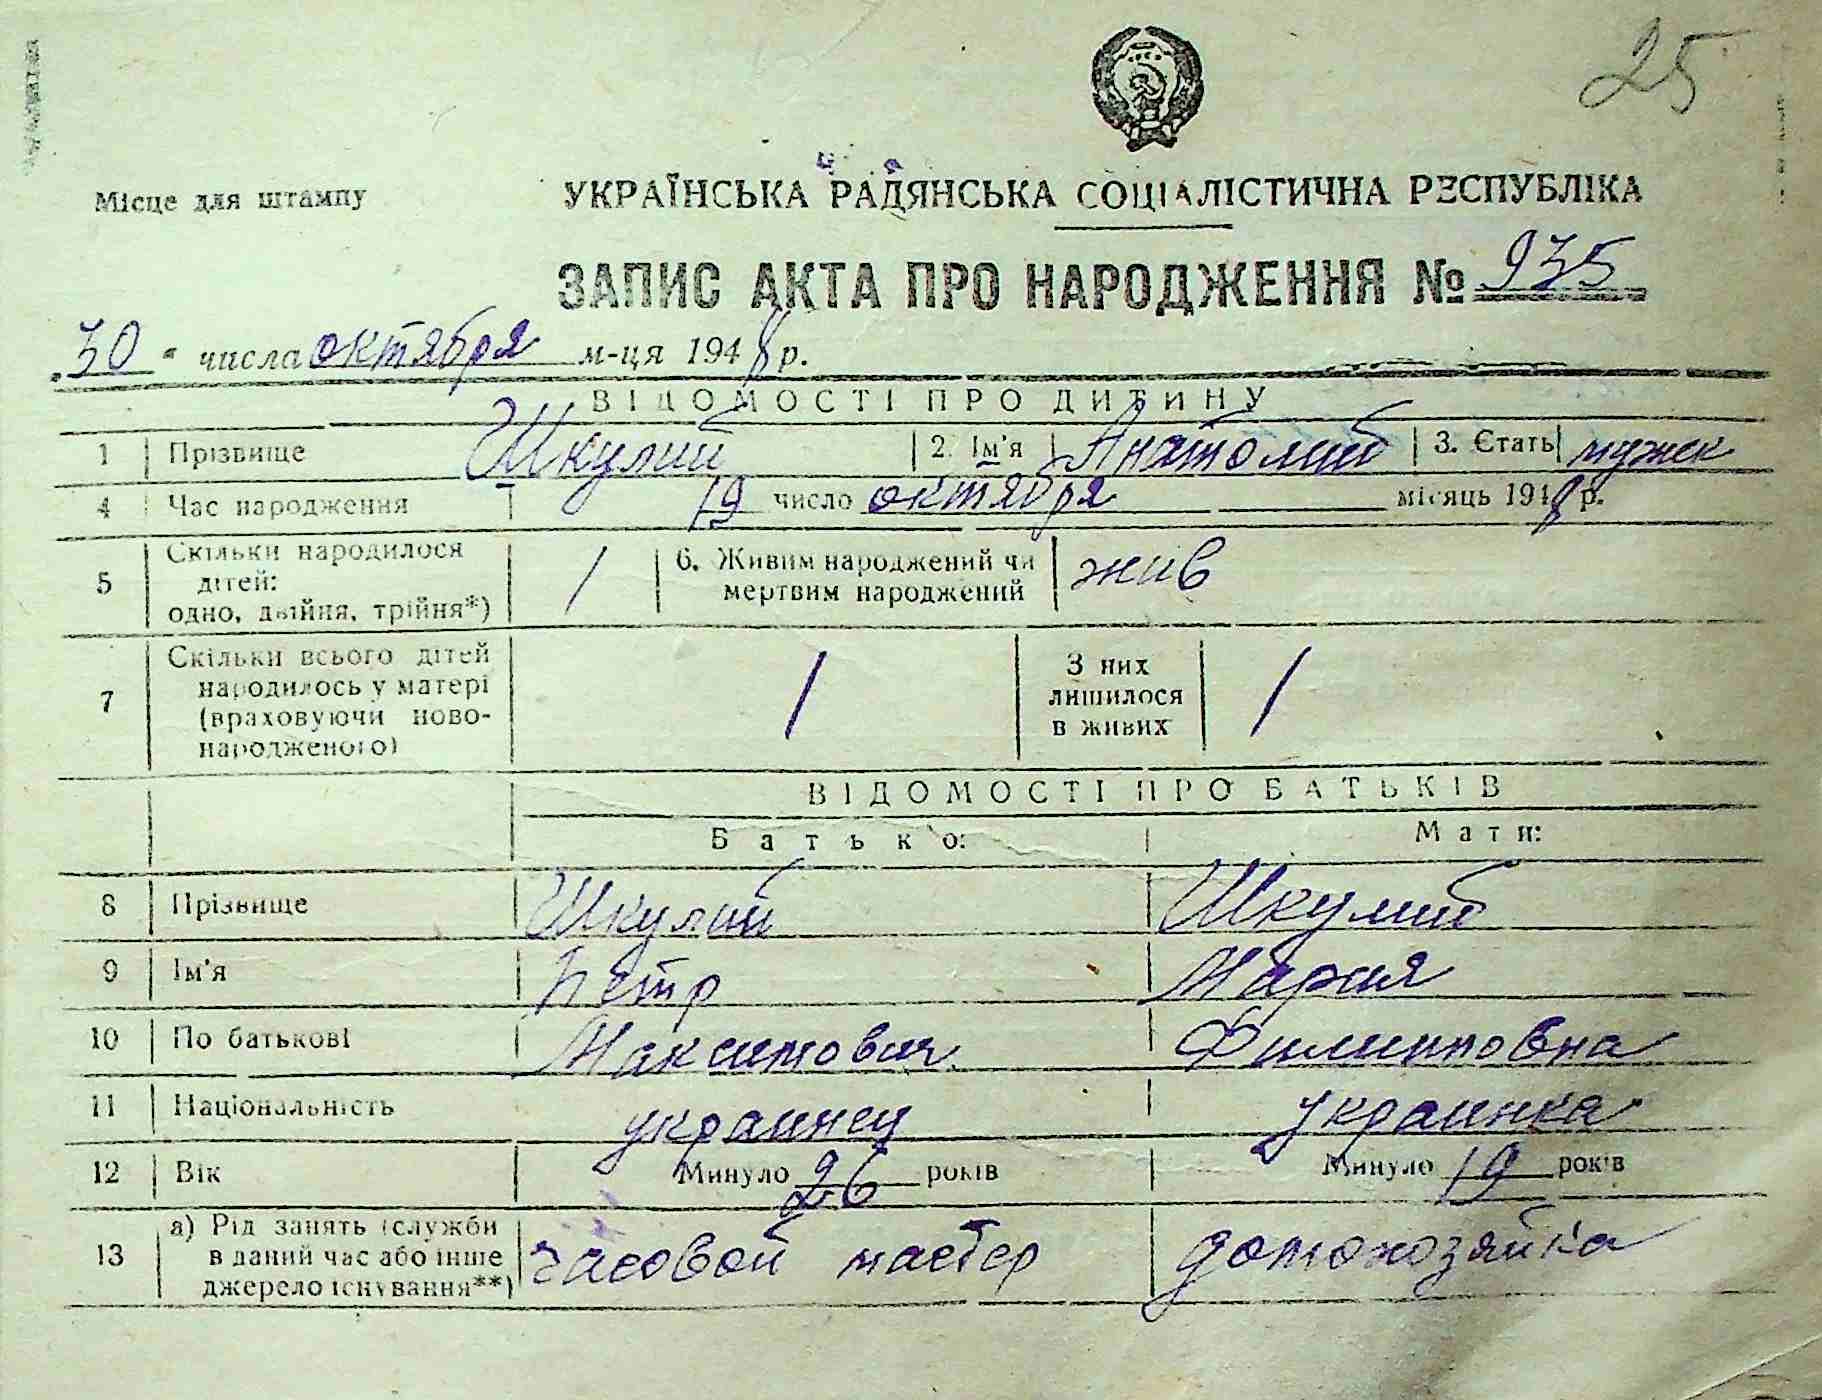 25
Місце для штампу
УКРАЇНСЬКА РАДЯНСЬКА СОЦІАЛІСТИЧНА РЕСПУБЛІКА
ЗАПИС АКТА ПРО НАРОДЖЕННЯ № 935
„30“ числа октября м-ця 1948 р.
ВІДОМОСТІ ПРО ДИТИНУ
1 Прізвище Шкулий 2. Ім'я Анатолий 3. Стать мужск
4 Час народження 19 число октября місяць 1948 р.
5 Скільки народилося дітей: одно, двійня, трійня*) 1 6. Живим народжений чи мертвим народжений жив
7 Скільки всього дітей народилось у матері (враховуючи ново-народженого) 1 З них лишилося в живих 1
ВІДОМОСТІ ПРО БАТЬКІВ
Батько: Мати:
8 Прізвище Шкулий Шкулий
9 Ім'я Петр Мария
10 По батькові Максимович Филипповна
11 Національність украинец украинка
12 Вік Минуло 26 років Минуло 19 років
13 а) Рід занять (служби в даний час або інше джерело існування**) часовой мастер домохозяйка